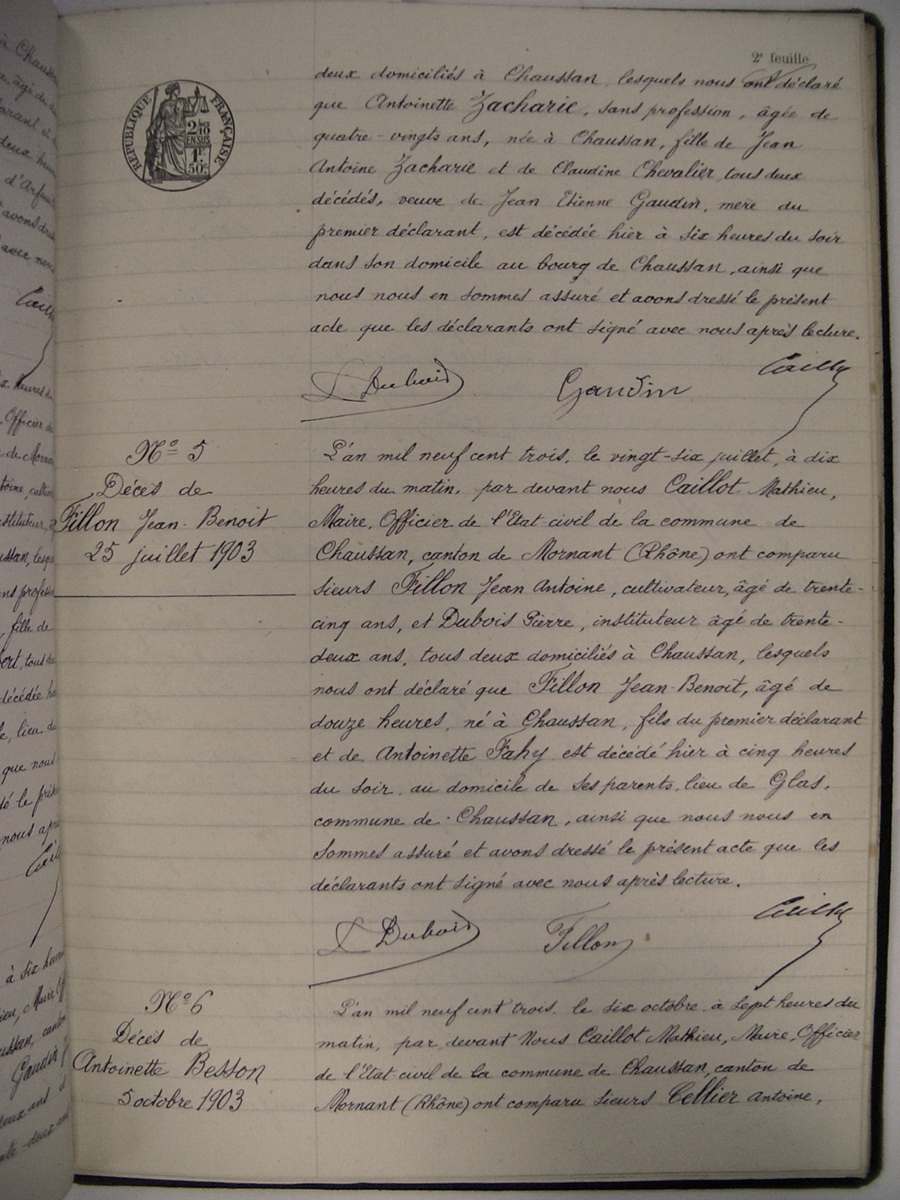 2e feuille
RÉPUBLIQUE FRANÇAISE
2/10
EN SUS
1F
50c
deux domiciliés à Chaussan, lesquels nous ont déclaré
que Antoinette Zacharie, sans profession, âgée de
quatre-vingts ans, née à Chaussan, fille de Jean
Antoine Zacharie et de Claudine Chevalier, tous deux
décédés, veuve de Jean Etienne Gaudin, mère du
premier déclarant, est décédée hier à six heures du soir
dans son domicile au bourg de Chaussan, ainsi que
nous nous en sommes assuré et avons dressé le présent
acte que les déclarants ont signé avec nous après lecture.
Dubois Gaudin
No 5
Décès de
Fillon Jean-Benoit
25 juillet 1903
L'an mil neuf cent trois, le vingt-six juillet, à dix
heures du matin, par devant nous Caillot Mathieu,
Maire, Officier de l'Etat civil de la commune de
Chaussan, canton de Mornant (Rhône) ont comparu
sieurs Fillon Jean Antoine, cultivateur, âgé de trente-
cinq ans, et Dubois Pierre, instituteur âgé de trente-
deux ans, tous deux domiciliés à Chaussan, lesquels
nous ont déclaré que Fillon Jean-Benoit, âgé de
douze heures, né à Chaussan, fils du premier déclarant
et de Antoinette Fahy est décédé hier à cinq heures
du soir, au domicile de ses parents, lieu de Glas,
commune de Chaussan, ainsi que nous nous en
sommes assuré et avons dressé le présent acte que les
déclarants ont signé avec nous après lecture.
Dubois Fillon
No 6
Décès de
Antoinette Besson
5 octobre 1903
L'an mil neuf cent trois, le six octobre, à sept heures du
matin, par devant Nous Caillot Mathieu, Maire, Officier
de l'Etat civil de la commune de Chaussan, canton de
Mornant (Rhône) ont comparu sieurs Cellier Antoine,